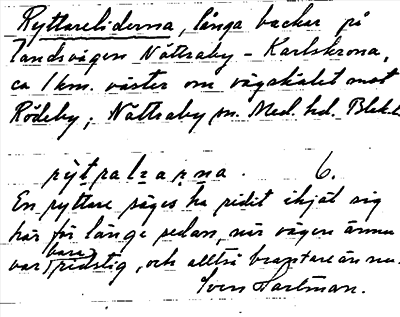 Ryttareliderna, långa backar på
landsvägen Nättraby - Karlskrona,
ca 1 km. väster om vägskälet mot
Rödeby; Nättraby sn. Med. hd. Blek. l.
rýtralıạṇa. 6.
En ryttare säges ha ridit ihjäl sig
här för länge sedan, när vägen ännu
var bara ridstig, och alltså brantare än nu.
Sven Hartman.